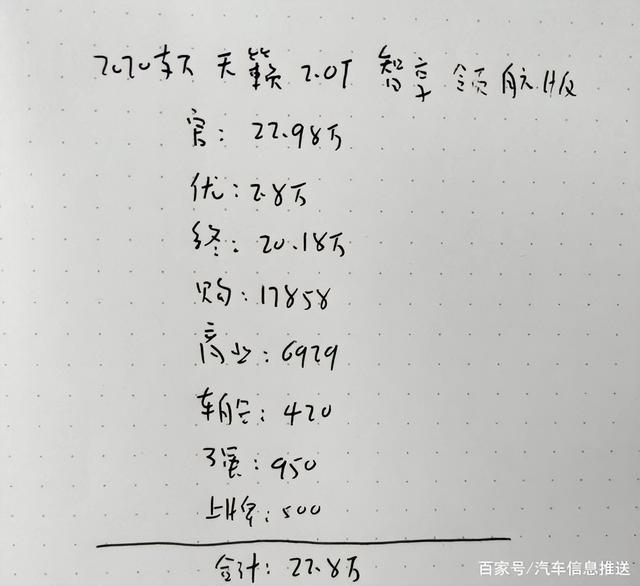 2020款 天籁 2.0T 智享领航版
官: 22.98万
优: 2.8万
终: 20.18万
购: 17858
商业: 6929
车船: 420
强: 950
上牌: 500
合计: 22.8万
百家号/汽车信息推送